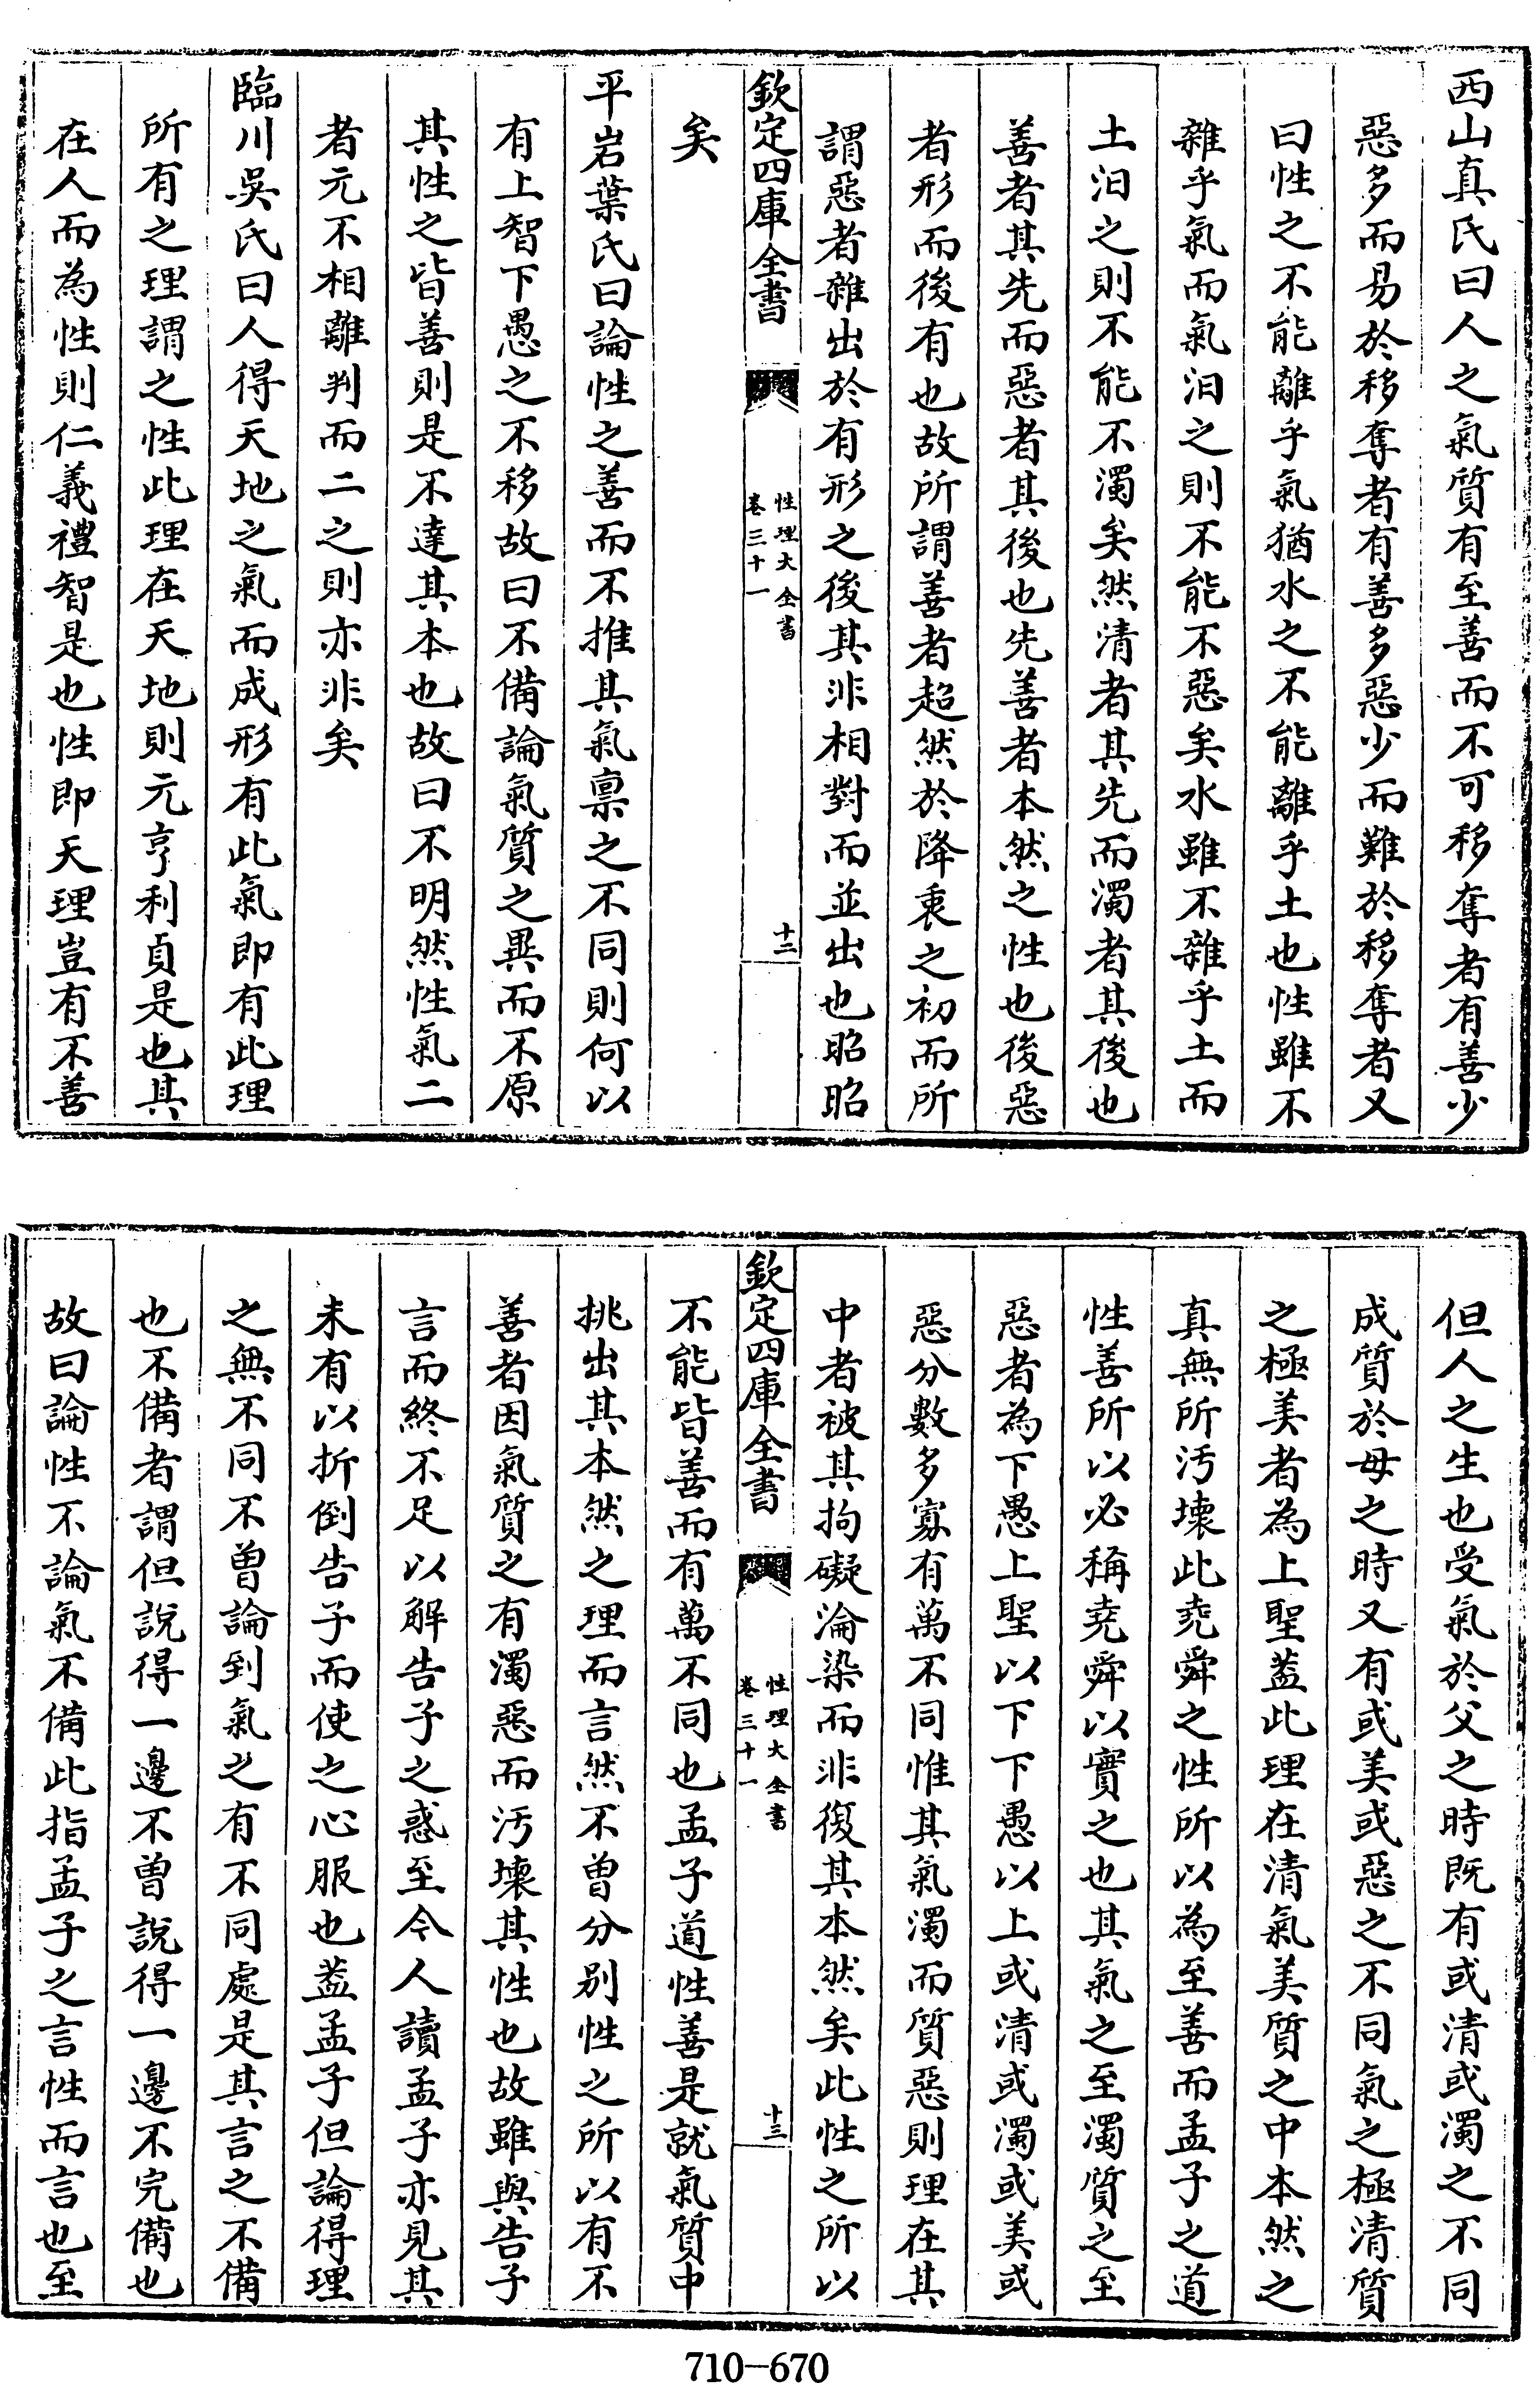 西山真氏曰人之氣質有至善而不可移奪者有善少
惡多而易於移奪者有善多惡少而難於移奪者又
曰性之不能離乎氣猶水之不能離乎土也性雖不
雜乎氣而氣汨之則不能不惡矣水雖不雜乎土而
土汨之則不能不濁矣然清者其先而濁者其後也
善者其先而惡者其後也先善者本然之性也後惡
者形而後有也故所謂善者超然於降衷之初而所
謂惡者雜出於有形之後其非相對而並出也昭昭
欽定四庫全書
性理大全書
卷三十一
十二
矣
平岩葉氏曰論性之善而不推其氣禀之不同則何以
有上智下愚之不移故曰不備論氣質之異而不原
其性之皆善則是不達其本也故曰不明然性氣二
者元不相離判而二之則亦非矣
臨川吳氏曰人得天地之氣而成形有此氣即有此理
所有之理謂之性此理在天地則元亨利貞是也其
在人而為性則仁義禮智是也性即天理豈有不善
但人之生也受氣於父之時既有或清或濁之不同
成質於母之時又有或美或惡之不同氣之極清質
之極美者為上聖蓋此理在清氣美質之中本然之
真無所汚壞此堯舜之性所以為至善而孟子之道
性善所以必稱堯舜以實之也其氣之至濁質之至
惡者為下愚上聖以下下愚以上或清或濁或美或
惡分數多寡有萬不同惟其氣濁而質惡則理在其
中者被其拘礙淪染而非復其本然矣此性之所以
欽定四庫全書
性理大全書
卷三十一
十三
不能皆善而有萬不同也孟子道性善是就氣質中
挑出其本然之理而言然不曾分别性之所以有不
善者因氣質之有濁惡而汚壞其性也故雖與告子
言而終不足以解告子之惑至今人讀孟子亦見其
未有以折倒告子而使之心服也蓋孟子但論得理
之無不同不曾論到氣之有不同處是其言之不備
也不備者謂但說得一邊不曾說得一邊不完備也
故曰論性不論氣不備此指孟子之言性而言也至
710-670